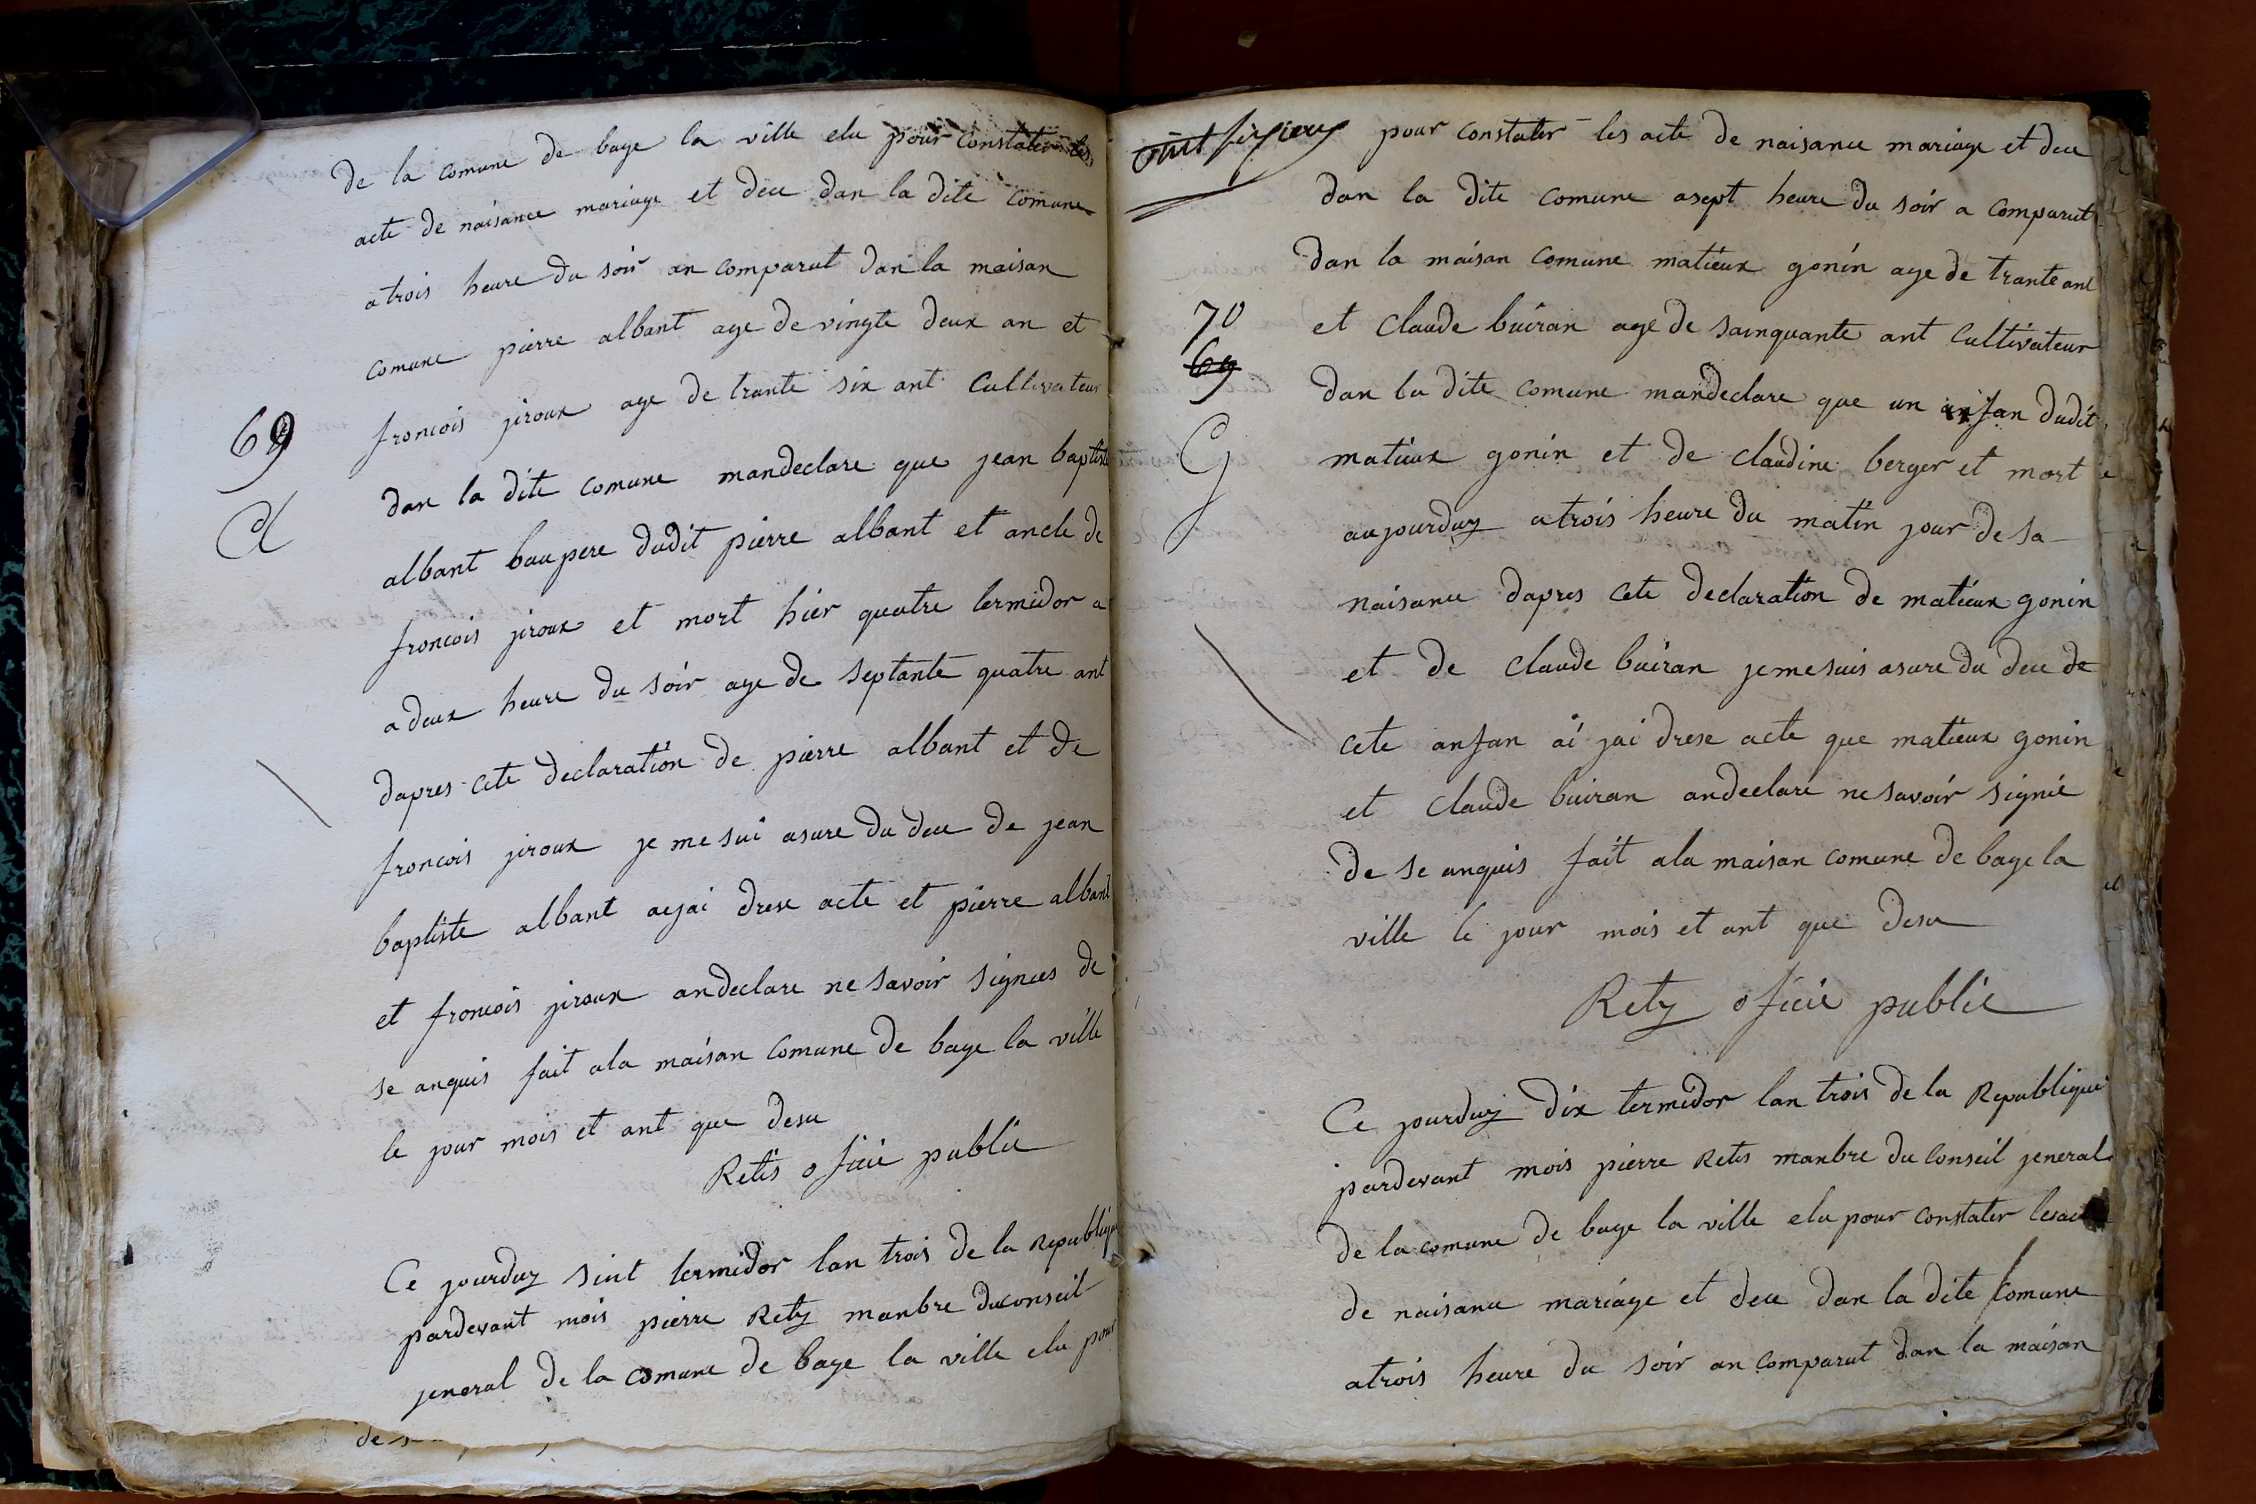 de la comune de bage la ville elu pour constater les
acte de naisance mariage et dece dan la dite comune
atrois heure du soir an comparut dan la maisan
comune pierre albant age de vingte deux an et
froncois jiroux age de trante six ant Cultivateur
69
dan la dite comune mandeclare que jean baptiste
A
albant baupere dudit pierre albant et ancle de
froncois jiroux et mort hier quatre termidor a
a deux heure du soir age de septante quatre ant
dapres cete declaration de pierre albant et de
froncois jiroux je me sui asure du dece de jean
baptiste albant aejai drese acte et pierre albant
et froncois jiroux andeclare ne savoir signees de
se anquis fait ala maisan comune de bage la ville
le jour mois et ant que desu
Retis oficie public
Ce jourduy sint termidor lan trois de la Republique
pardevant mois pierre Rety manbre du conseil
jeneral de la comune de bage la ville elu pour
vint
pour constater les acte de naisance mariage et dece
dan la dite comune asept heure du soir a comparut
dan la maisan comune matieux gonin age de trante ant
70
et claude buiran age de sainquante ant cultivateur
69
dan la dite comune mandeclare que un anfan dudit
G
matieux gonin et de claudine berger et mort
aujourduy atrois heure du matin jour de sa
naisance dapres cete declaration de matieux gonin
et de claude buiran jemesuis asure du dece de
cete anfan ai jai drese acte que matieux gonin
et claude buiran andeclare ne savoir signie
de se anquis fait ala maisan comune de bage la
ville le jour mois et ant que desu
Rety oficie public
Ce jourduy dix termidor lan trois de la Republique
pardevant mois pierre Retis manbre du conseil jeneral
de la comune de bage la ville elu pour constater les
de naisance mariage et dece dan la dite Comune
atrois heure du soir an comparut dan la maisan